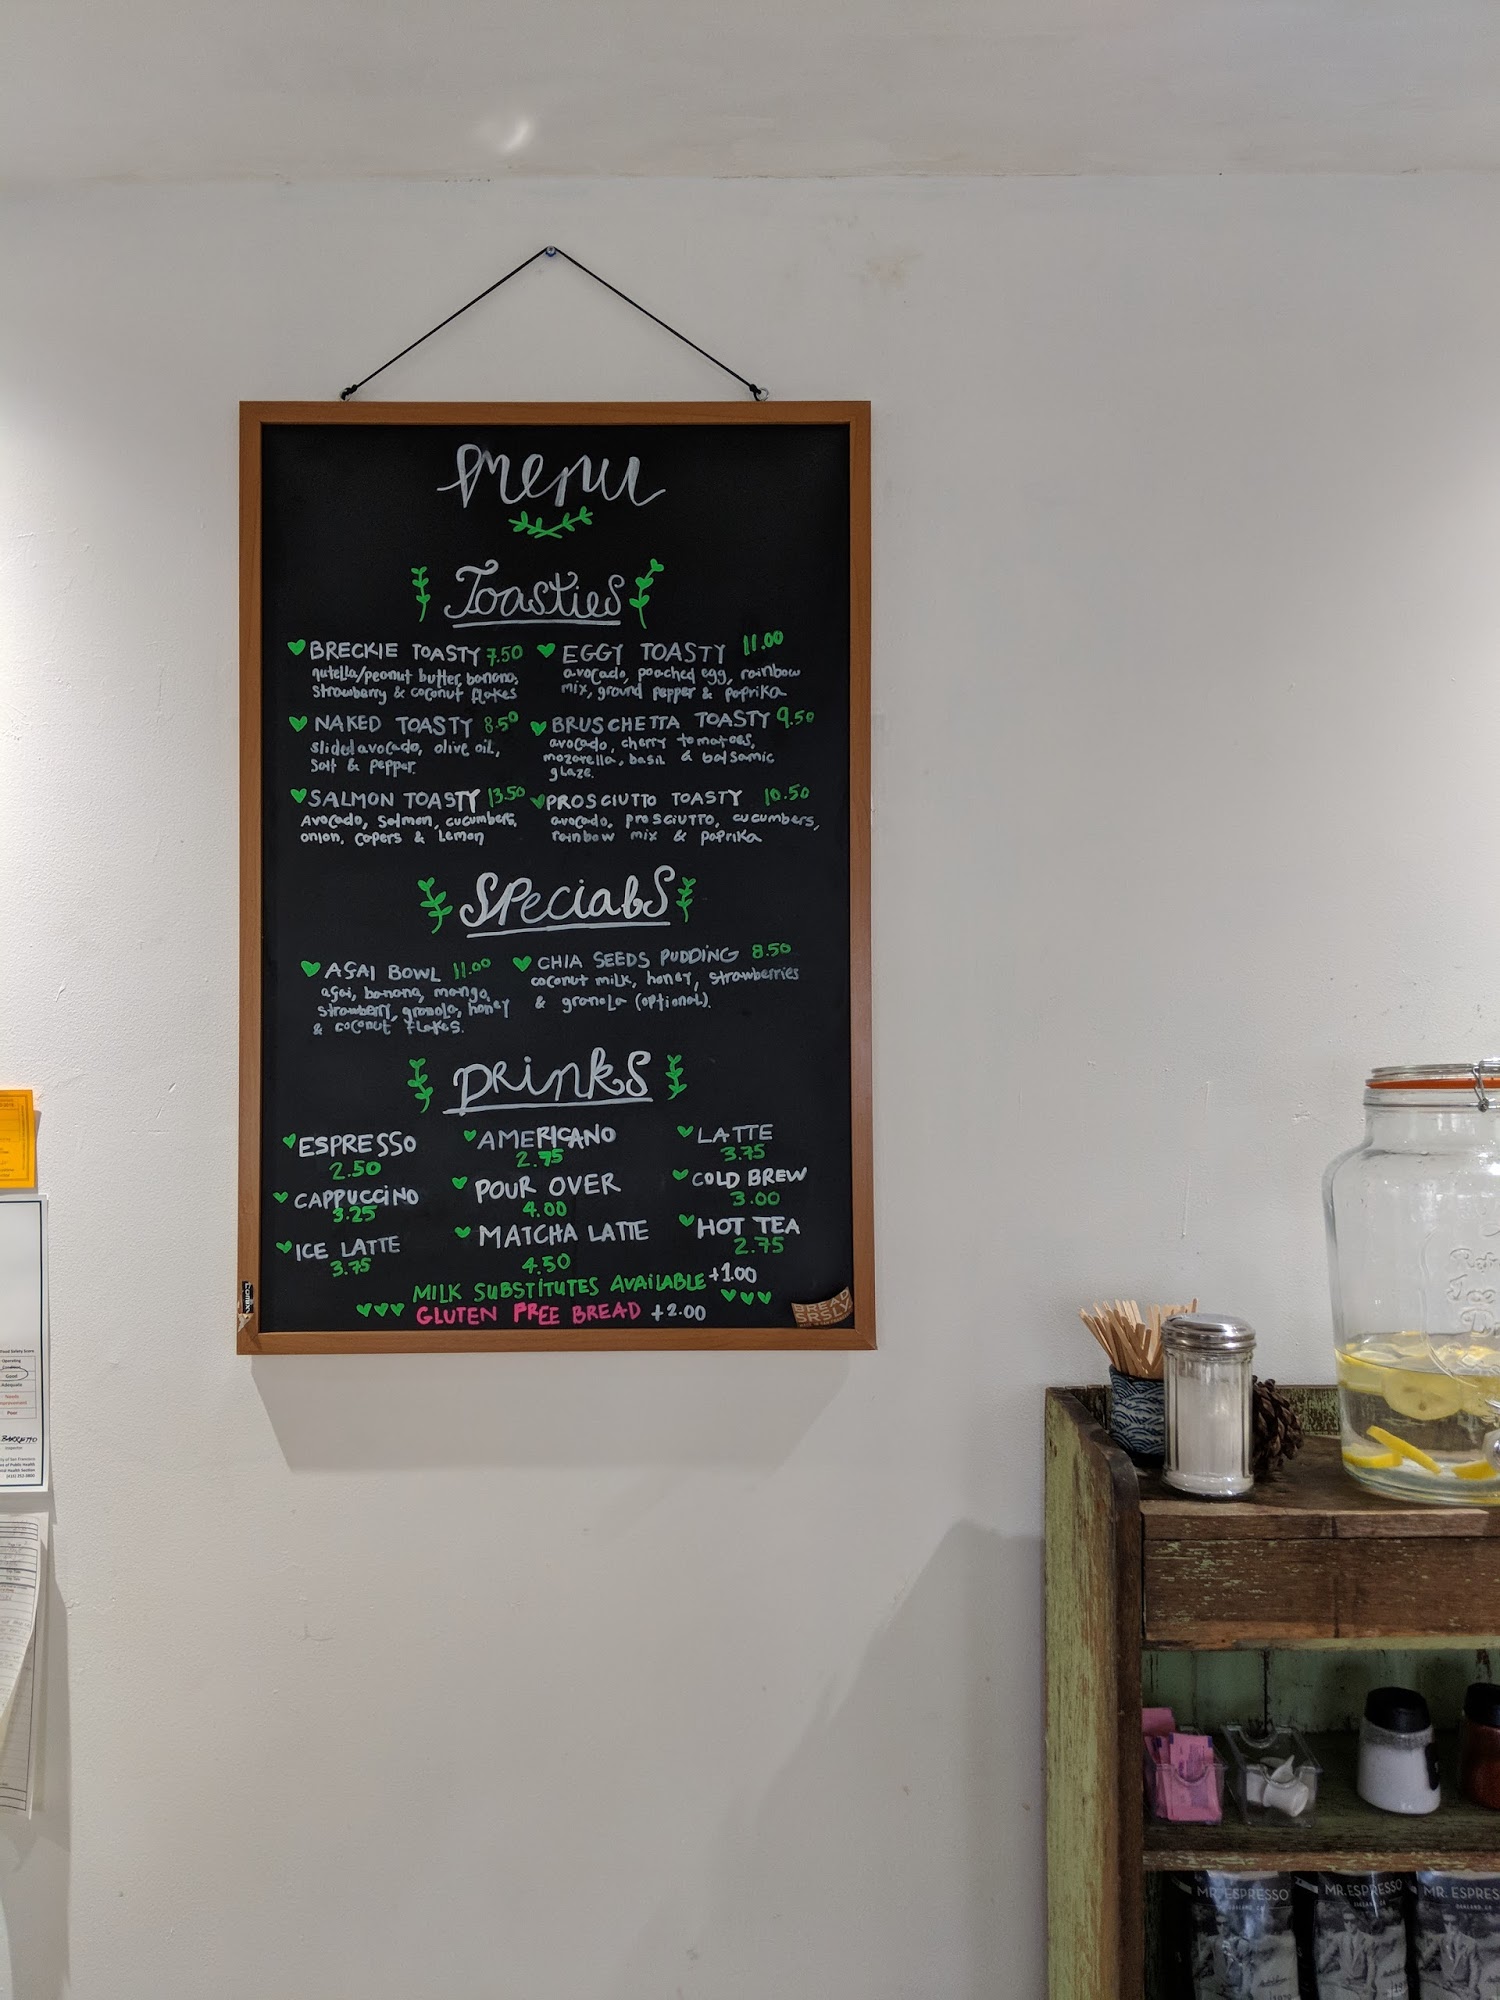 Menu
Toasties
BRECKIE TOASTY 7.50
nutella/peanut butter, banana,
strawberry & coconut flakes
EGGY TOASTY 11.00
avocado, poached egg, rainbow
mix, ground pepper & paprika
NAKED TOASTY 8.50
slided avocado, olive oil,
salt & pepper.
BRUSCHETTA TOASTY 9.50
avocado, cherry tomatoes,
mozarella, basil & balsamic
glaze.
SALMON TOASTY 13.50
Avocado, salmon, cucumbers,
onion, capers & lemon
PROSCIUTTO TOASTY 10.50
avocado, prosciutto, cucumbers,
rainbow mix & paprika
Specials
AÇAI BOWL 11.00
açai, banana, mango,
strawberry, granola, honey
& coconut flakes.
CHIA SEEDS PUDDING 8.50
coconut milk, honey, strawberries
& granola (optional).
Drinks
ESPRESSO
2.50
AMERICANO
2.75
LATTE
3.75
CAPPUCCINO
3.25
POUR OVER
4.00
COLD BREW
3.00
ICE LATTE
3.75
MATCHA LATTE
4.50
HOT TEA
2.75
MILK SUBSTITUTES AVAILABLE +1.00
GLUTEN FREE BREAD +2.00
BREAD
SRSLY
comix
Food Safety Score
Operating
Good
Adequate
Needs
Improvement
Poor
MR. ESPRESSO
OAKLAND, CA
MR. ESPRESSO
OAKLAND, CA
MR. ESPRES
OAKLAND, CA